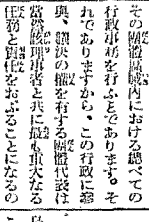 その團體區域內における總べての
行政事務を行ふことであります。そ
れでありますから、この行政に參
與、議決の權を有する團體代表は
當該理事者と共に最も重大なる
任務と責任をおぶることになるの